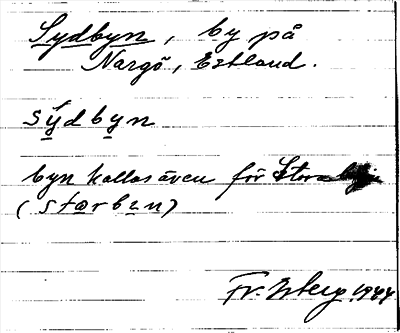 Sydbyn, by på
Nargö, Estland.
sydbyn
byn kallas även för Storabyn
(størbɪn)
Fr. Isberg 1944